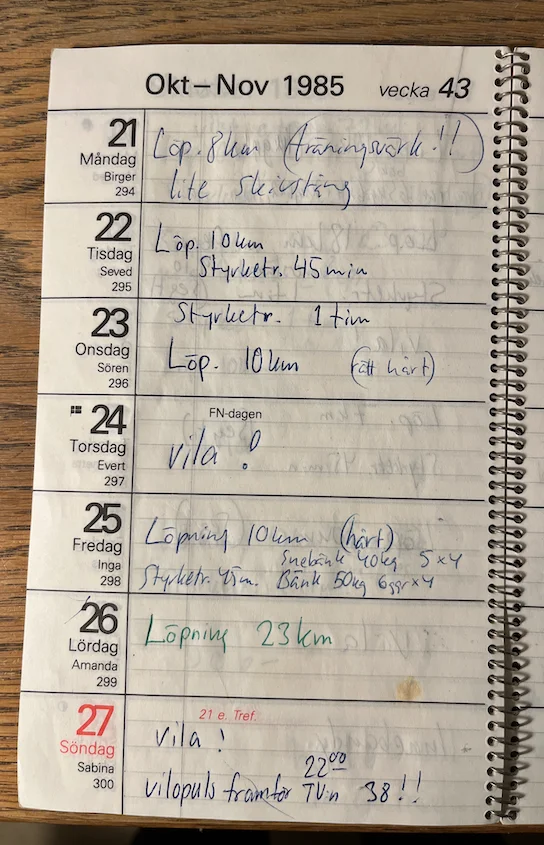 Okt – Nov 1985 vecka 43
21 Måndag Birger 294
Löp. 8km (träningsvärk!!)
lite skivstång
22 Tisdag Seved 295
Löp. 10km
Styrketr. 45min
23 Onsdag Sören 296
Styrketr. 1 tim
Löp. 10km (rätt hårt)
24 Torsdag Evert 297
FN-dagen
vila !
25 Fredag Inga 298
Löpning 10km (hårt)
Snebänk 40kg 5x4
Styrketr. 45m. Bänk 50kg 6ggr x4
26 Lördag Amanda 299
Löpning 23km
27 Söndag Sabina 300
21 e. Tref.
vila !
2200
vilopuls framför TV:n 38!!